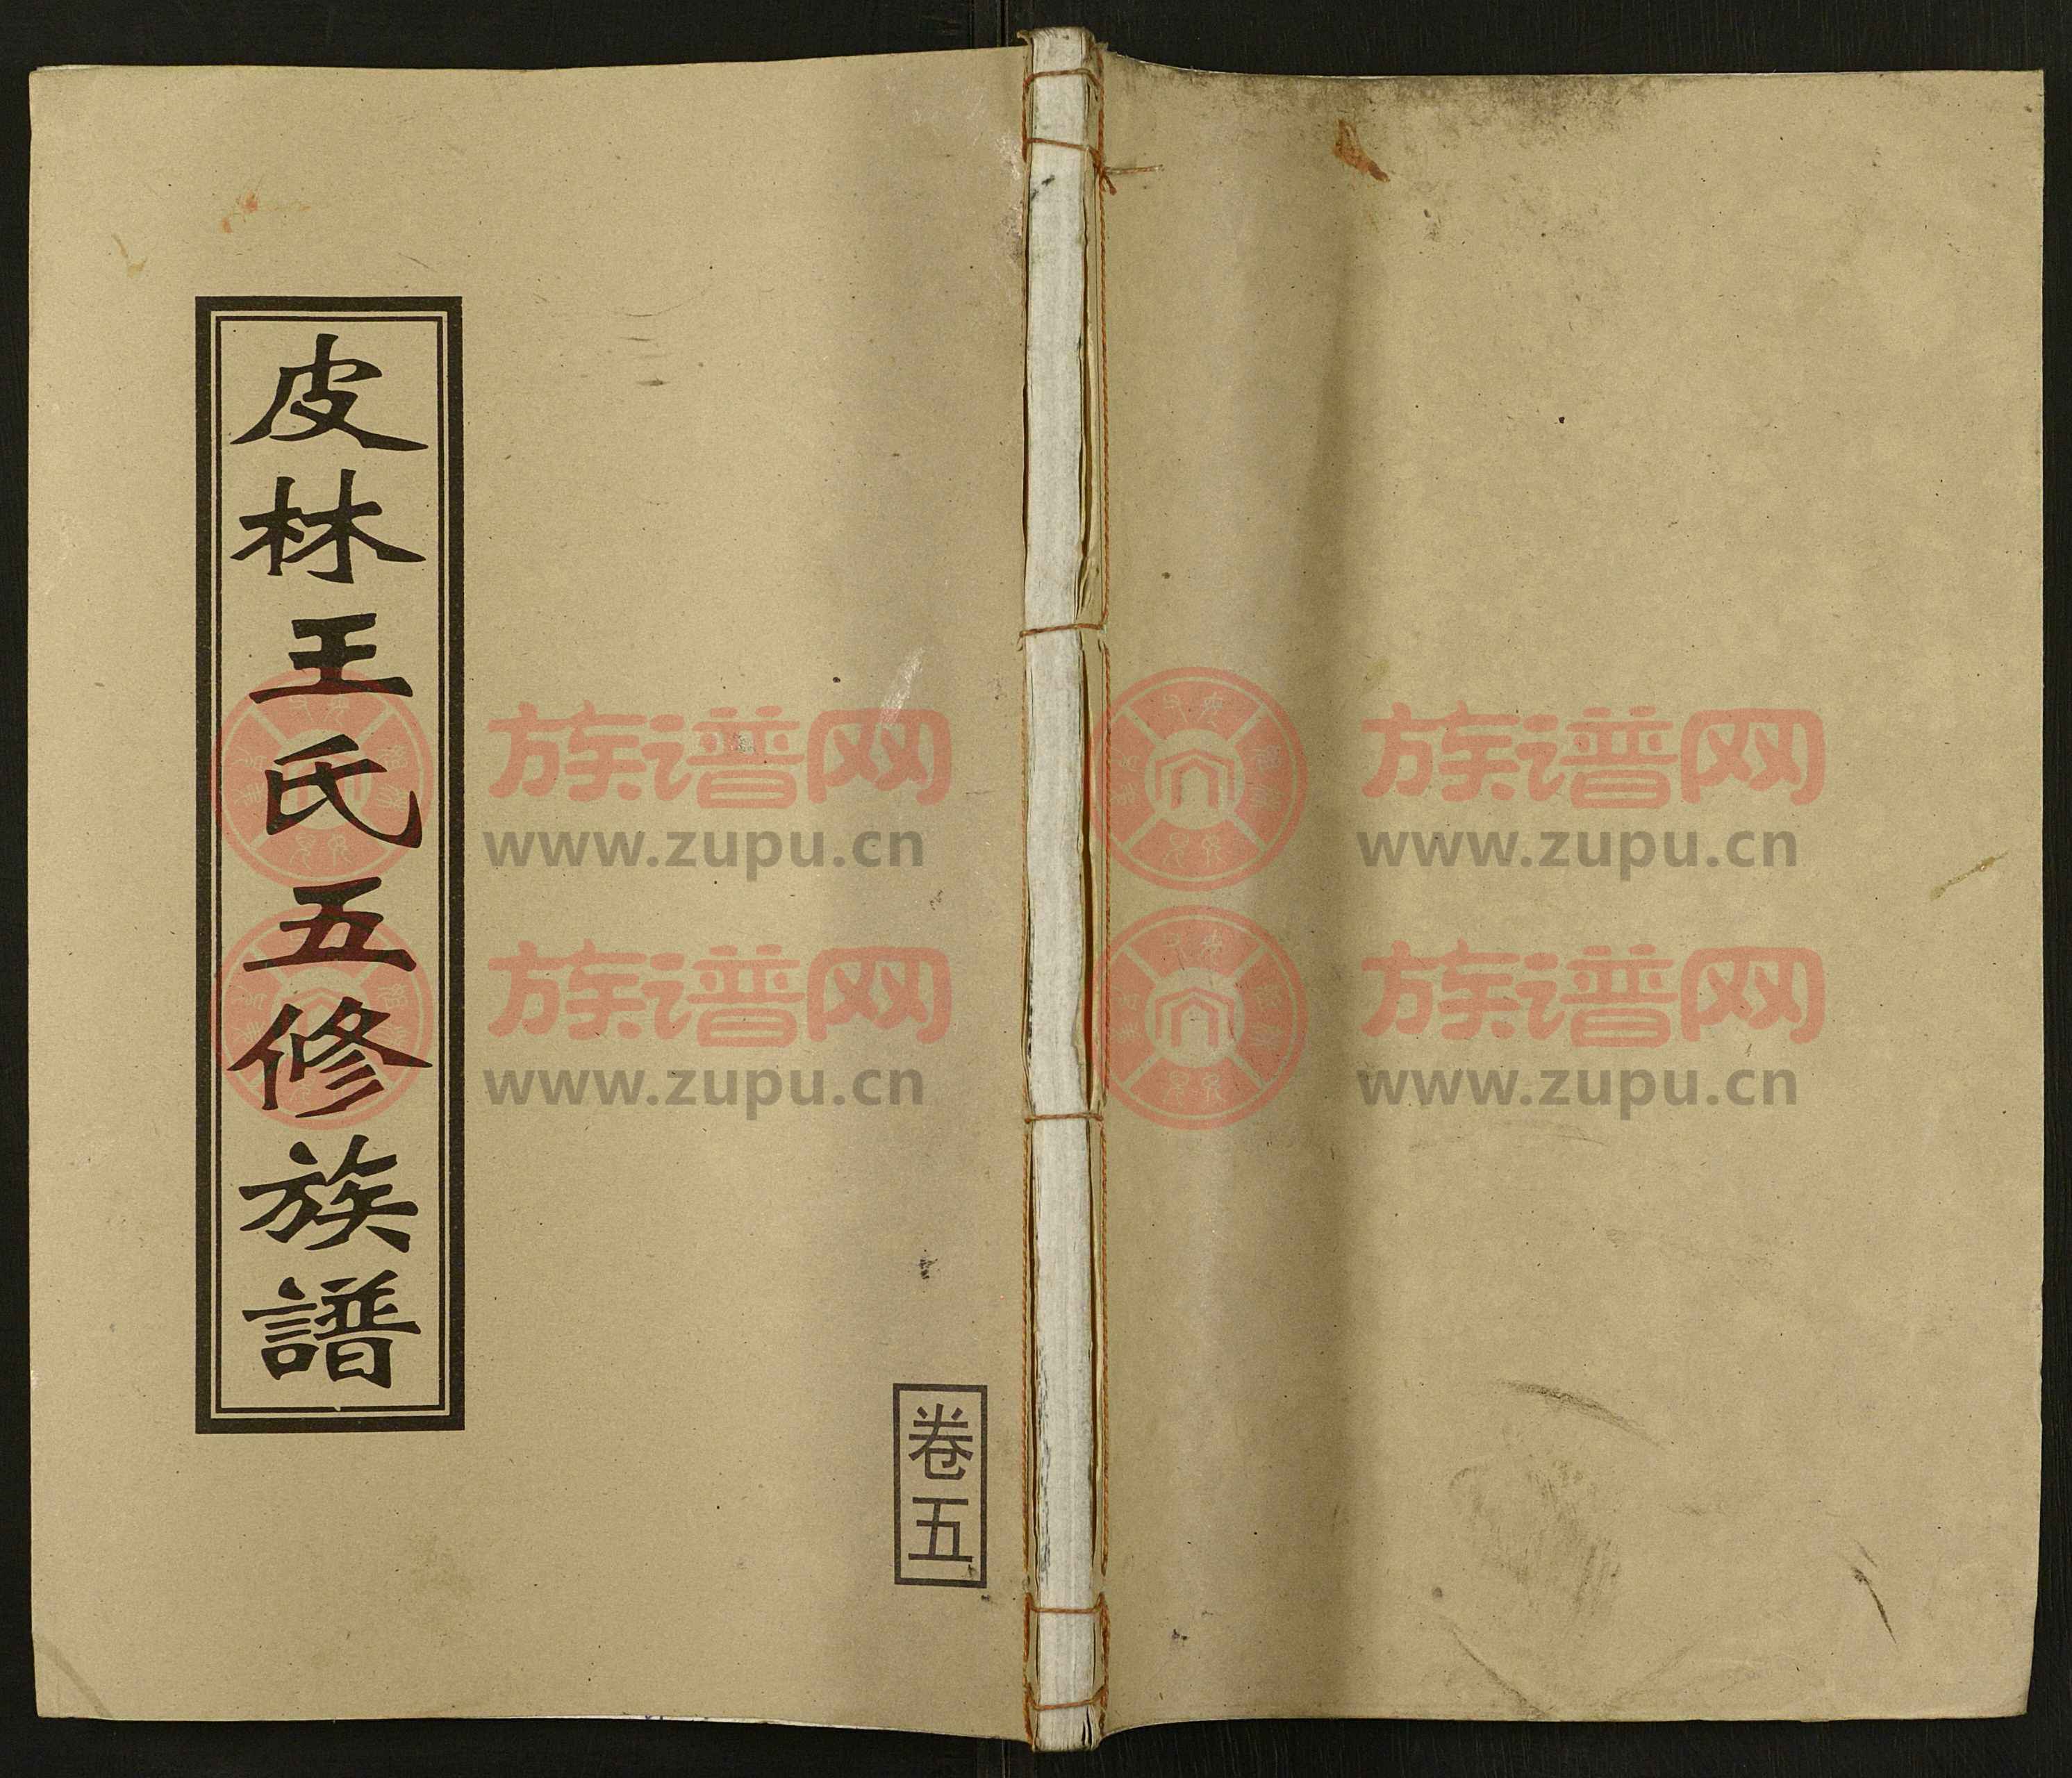 皮林王氏五修族譜
卷五
族谱网
www.zupu.cn
族谱网
www.zupu.cn
族谱网
www.zupu.cn
族谱网
www.zupu.cn